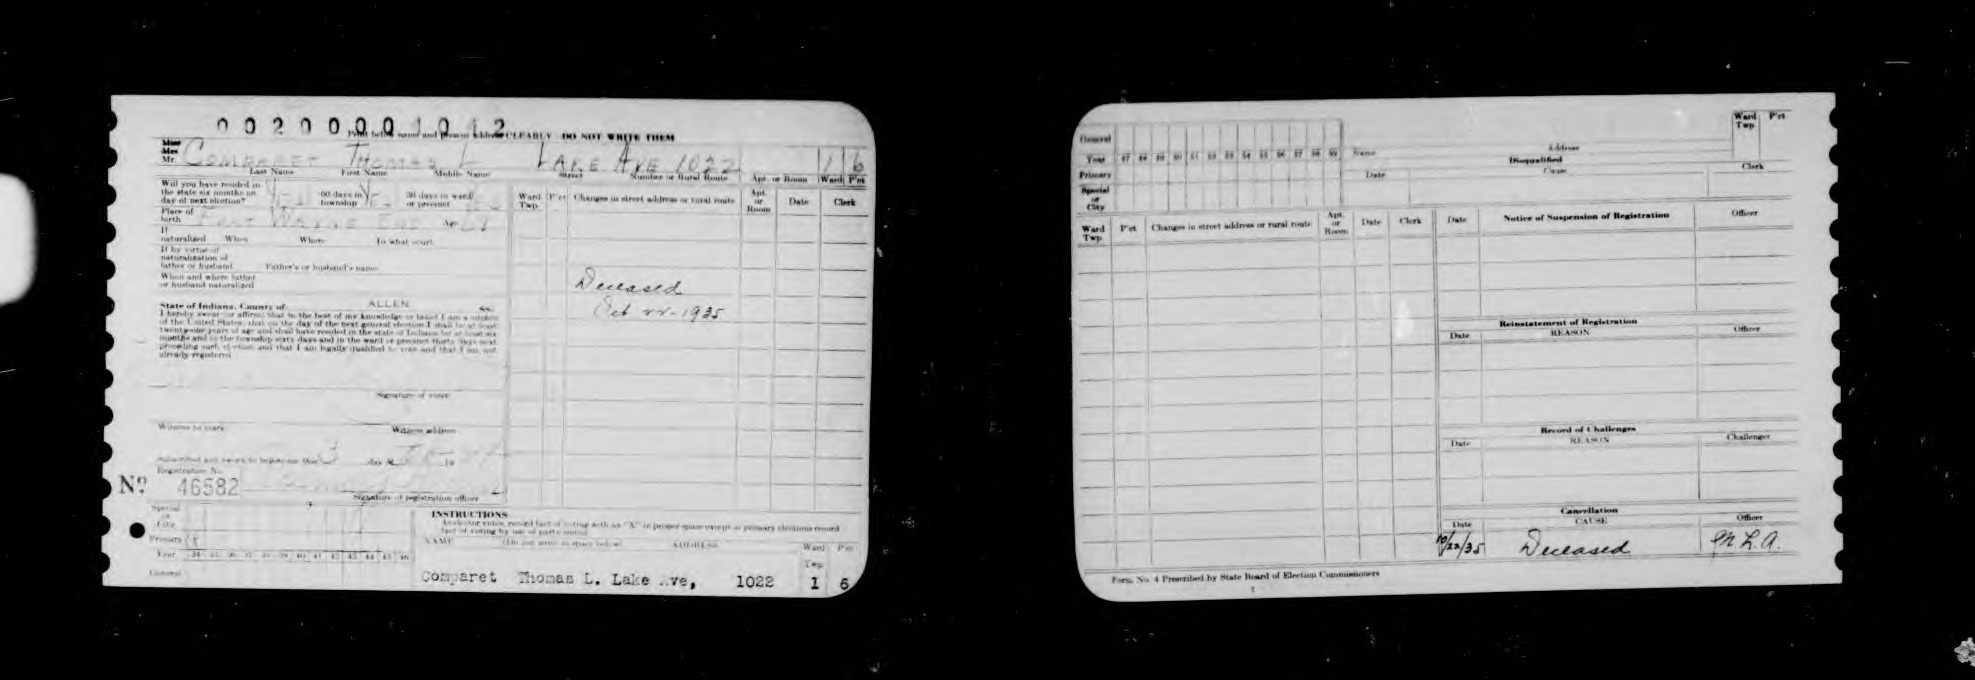 0 0 2 0 0 0 0 1 0 1 2
Print below name and present address CLEARLY DO NOT WRITE THEM
Miss
Mrs
Mr. COMPARET THOMAS L LAKE AVE 1022 1 6
Last Name First Name Middle Name Street Number or Rural Route Apt. or Room Ward P'ct
Will you have resided in
the state six months on
day of next election? 60 days in township 30 days in ward or precinct
Place of birth FORT WAYNE Age
If
naturalized When Where In what court
If by virtue of
naturalization of
father or husband Father's or husband's name
When and where father
or husband naturalized
State of Indiana, County of ALLEN SS:
I hereby swear or affirm that to the best of my knowledge or belief I am a citizen
of the United States, that on the day of the next general election I shall be at least
twenty-one years of age and shall have resided in the state of Indiana for at least six
months and in the township sixty days and in the ward or precinct thirty days next
preceding such election and that I am legally qualified to vote and that I am not
already registered
Signature of voter
Witness to mark Witness address
Subscribed and sworn to before me this 3 day of
Registration No.
No. 46582
Signature of registration officer
Ward Twp. P'ct Changes in street address or rural route Apt. or Room Date Clerk
Deceased
Oct 22-1935
Special
or
City
Primary
Year 34 35 36 37 38 39 40 41 42 43 44 45 46
General
INSTRUCTIONS
As elector votes, record fact of voting with an "X" in proper space except in primary elections record
fact of voting by use of party initial
NAME (Do not write in space below) ADDRESS Ward Twp P'ct
Comparet Thomas L. Lake Ave, 1022 1 6
General
Year 47 48 49 50 51 52 53 54 55 56 57 58 59
Primary
Special
or
City
Name Address Ward Twp. P'ct
Disqualified
Date Cause Clerk
Ward Twp. P'ct Changes in street address or rural route Apt. or Room Date Clerk
Date Notice of Suspension of Registration Officer
Reinstatement of Registration
Date REASON Officer
Record of Challenges
Date REASON Challenger
Cancellation
Date CAUSE Officer
10/22/35 Deceased M.L.A.
Form No. 4 Prescribed by State Board of Election Commissioners